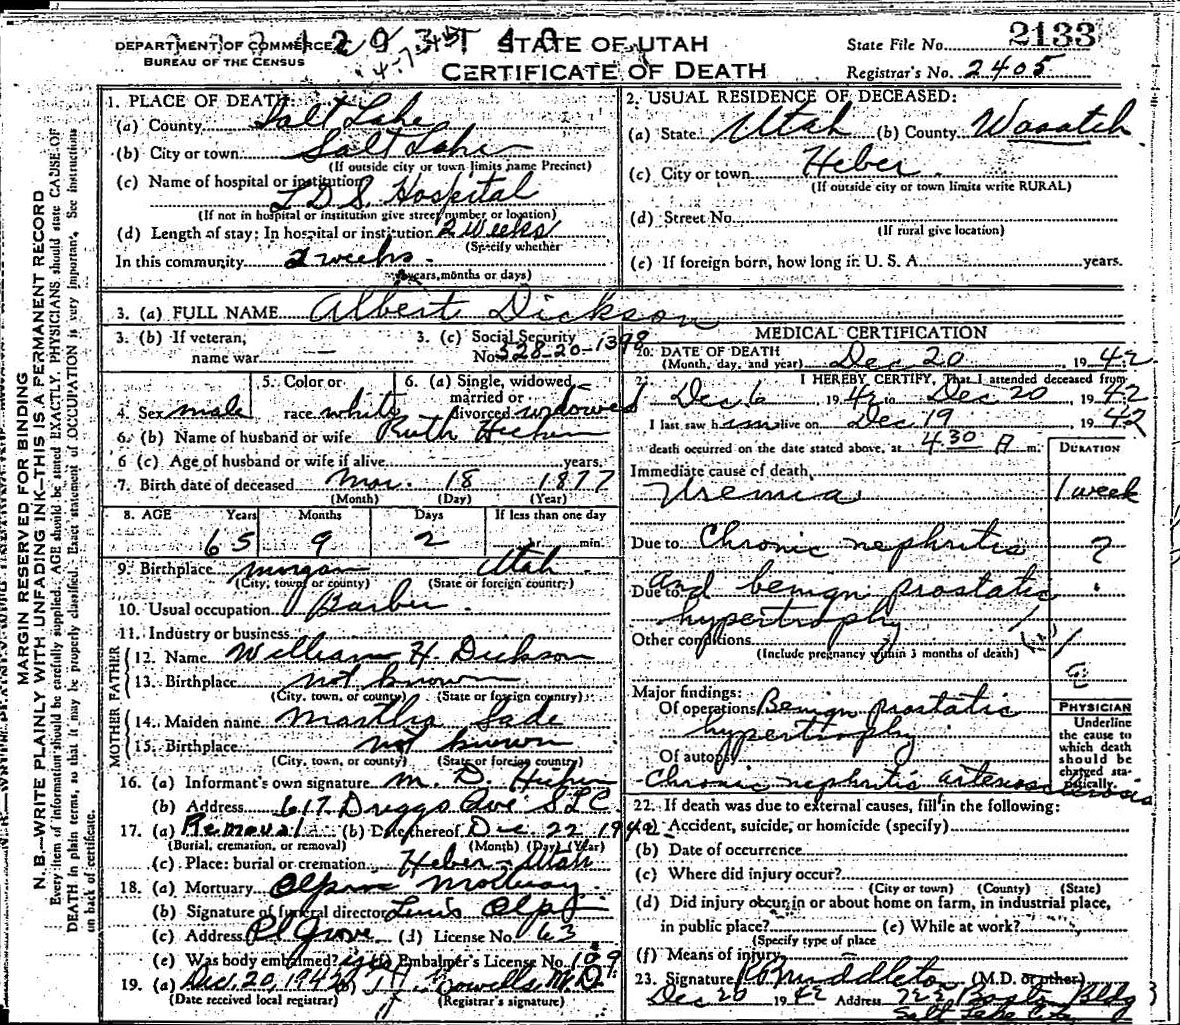 DEPARTMENT OF COMMERCE
BUREAU OF THE CENSUS
4-7-45
STATE OF UTAH
CERTIFICATE OF DEATH
State File No. 2133
Registrar's No. 2405
MARGIN RESERVED FOR BINDING
N. B.—WRITE PLAINLY WITH UNFADING INK—THIS IS A PERMANENT RECORD
Every item of information should be carefully supplied. AGE should be stated EXACTLY. PHYSICIANS should state CAUSE OF
DEATH in plain terms, so that it may be properly classified. Exact statement of OCCUPATION is very important. See instructions
on back of certificate.
1. PLACE OF DEATH
(a) County Salt Lake
(b) City or town Salt Lake
(If outside city or town limits name Precinct)
(c) Name of hospital or institution
L D S. Hospital
(If not in hospital or institution give street number or location)
(d) Length of stay: In hospital or institution 2 weeks
(Specify whether
In this community 2 weeks
years, months or days)
2. USUAL RESIDENCE OF DECEASED:
(a) State Utah (b) County Wasatch
(c) City or town Heber
(If outside city or town limits write RURAL)
(d) Street No.
(If rural give location)
(e) If foreign born, how long in U. S. A. years.
3. (a) FULL NAME Albert Dickson
3. (b) If veteran,
name war —
3. (c) Social Security
No. 528-20-1398
4. Sex male
5. Color or
race white
6. (a) Single, widowed,
married or
divorced widowed
6. (b) Name of husband or wife Ruth
6 (c) Age of husband or wife if alive years.
7. Birth date of deceased Mar. 18 1877
(Month) (Day) (Year)
8. AGE Years Months Days If less than one day
65 9 2 hr. min.
9. Birthplace Morgan Utah
(City, town, or county) (State or foreign country)
10. Usual occupation Barber
11. Industry or business
FATHER
12. Name William H. Dickson
13. Birthplace not known
(City, town, or county) (State or foreign country)
MOTHER
14. Maiden name Martha
15. Birthplace not known
(City, town, or county) (State or foreign country)
16. (a) Informant's own signature M. D.
(b) Address 617 Driggs Ave S L C.
17. (a) Removal (b) Date thereof Dec 22 1942
(Burial, cremation, or removal) (Month) (Day) (Year)
(c) Place: burial or cremation Heber - Utah
18. (a) Mortuary Mortuary
(b) Signature of funeral director
(c) Address Pl Grove (d) License No. 63
(e) Was body embalmed? (f) Embalmer's License No. 109
19. (a) Dec. 20, 1942 (b) M.D.
(Date received local registrar) (Registrar's signature)
MEDICAL CERTIFICATION
20. DATE OF DEATH
(Month, day, and year) Dec 20 1942
21. I HEREBY CERTIFY, That I attended deceased from
Dec 6 1942 to Dec 20 1942
I last saw him alive on Dec 19 1942
death occurred on the date stated above, at 4 30 A m.
DURATION
Immediate cause of death
Uremia 1 week
Due to Chronic nephritis ?
Due to and benign prostatic
hypertrophy
Other conditions
(Include pregnancy within 3 months of death)
Major findings:
Of operations Benign prostatic
hypertrophy
Of autopsy
Chronic nephritis arteriosclerosis
PHYSICIAN
Underline
the cause to
which death
should be
charged sta-
tistically.
22. If death was due to external causes, fill in the following:
(a) Accident, suicide, or homicide (specify)
(b) Date of occurrence
(c) Where did injury occur?
(City or town) (County) (State)
(d) Did injury occur in or about home on farm, in industrial place,
in public place? (e) While at work?
(Specify type of place
(f) Means of injury
23. Signature R Middleton (M.D. or other)
Dec 20 1942 Address Boston Bldg
Salt Lake City